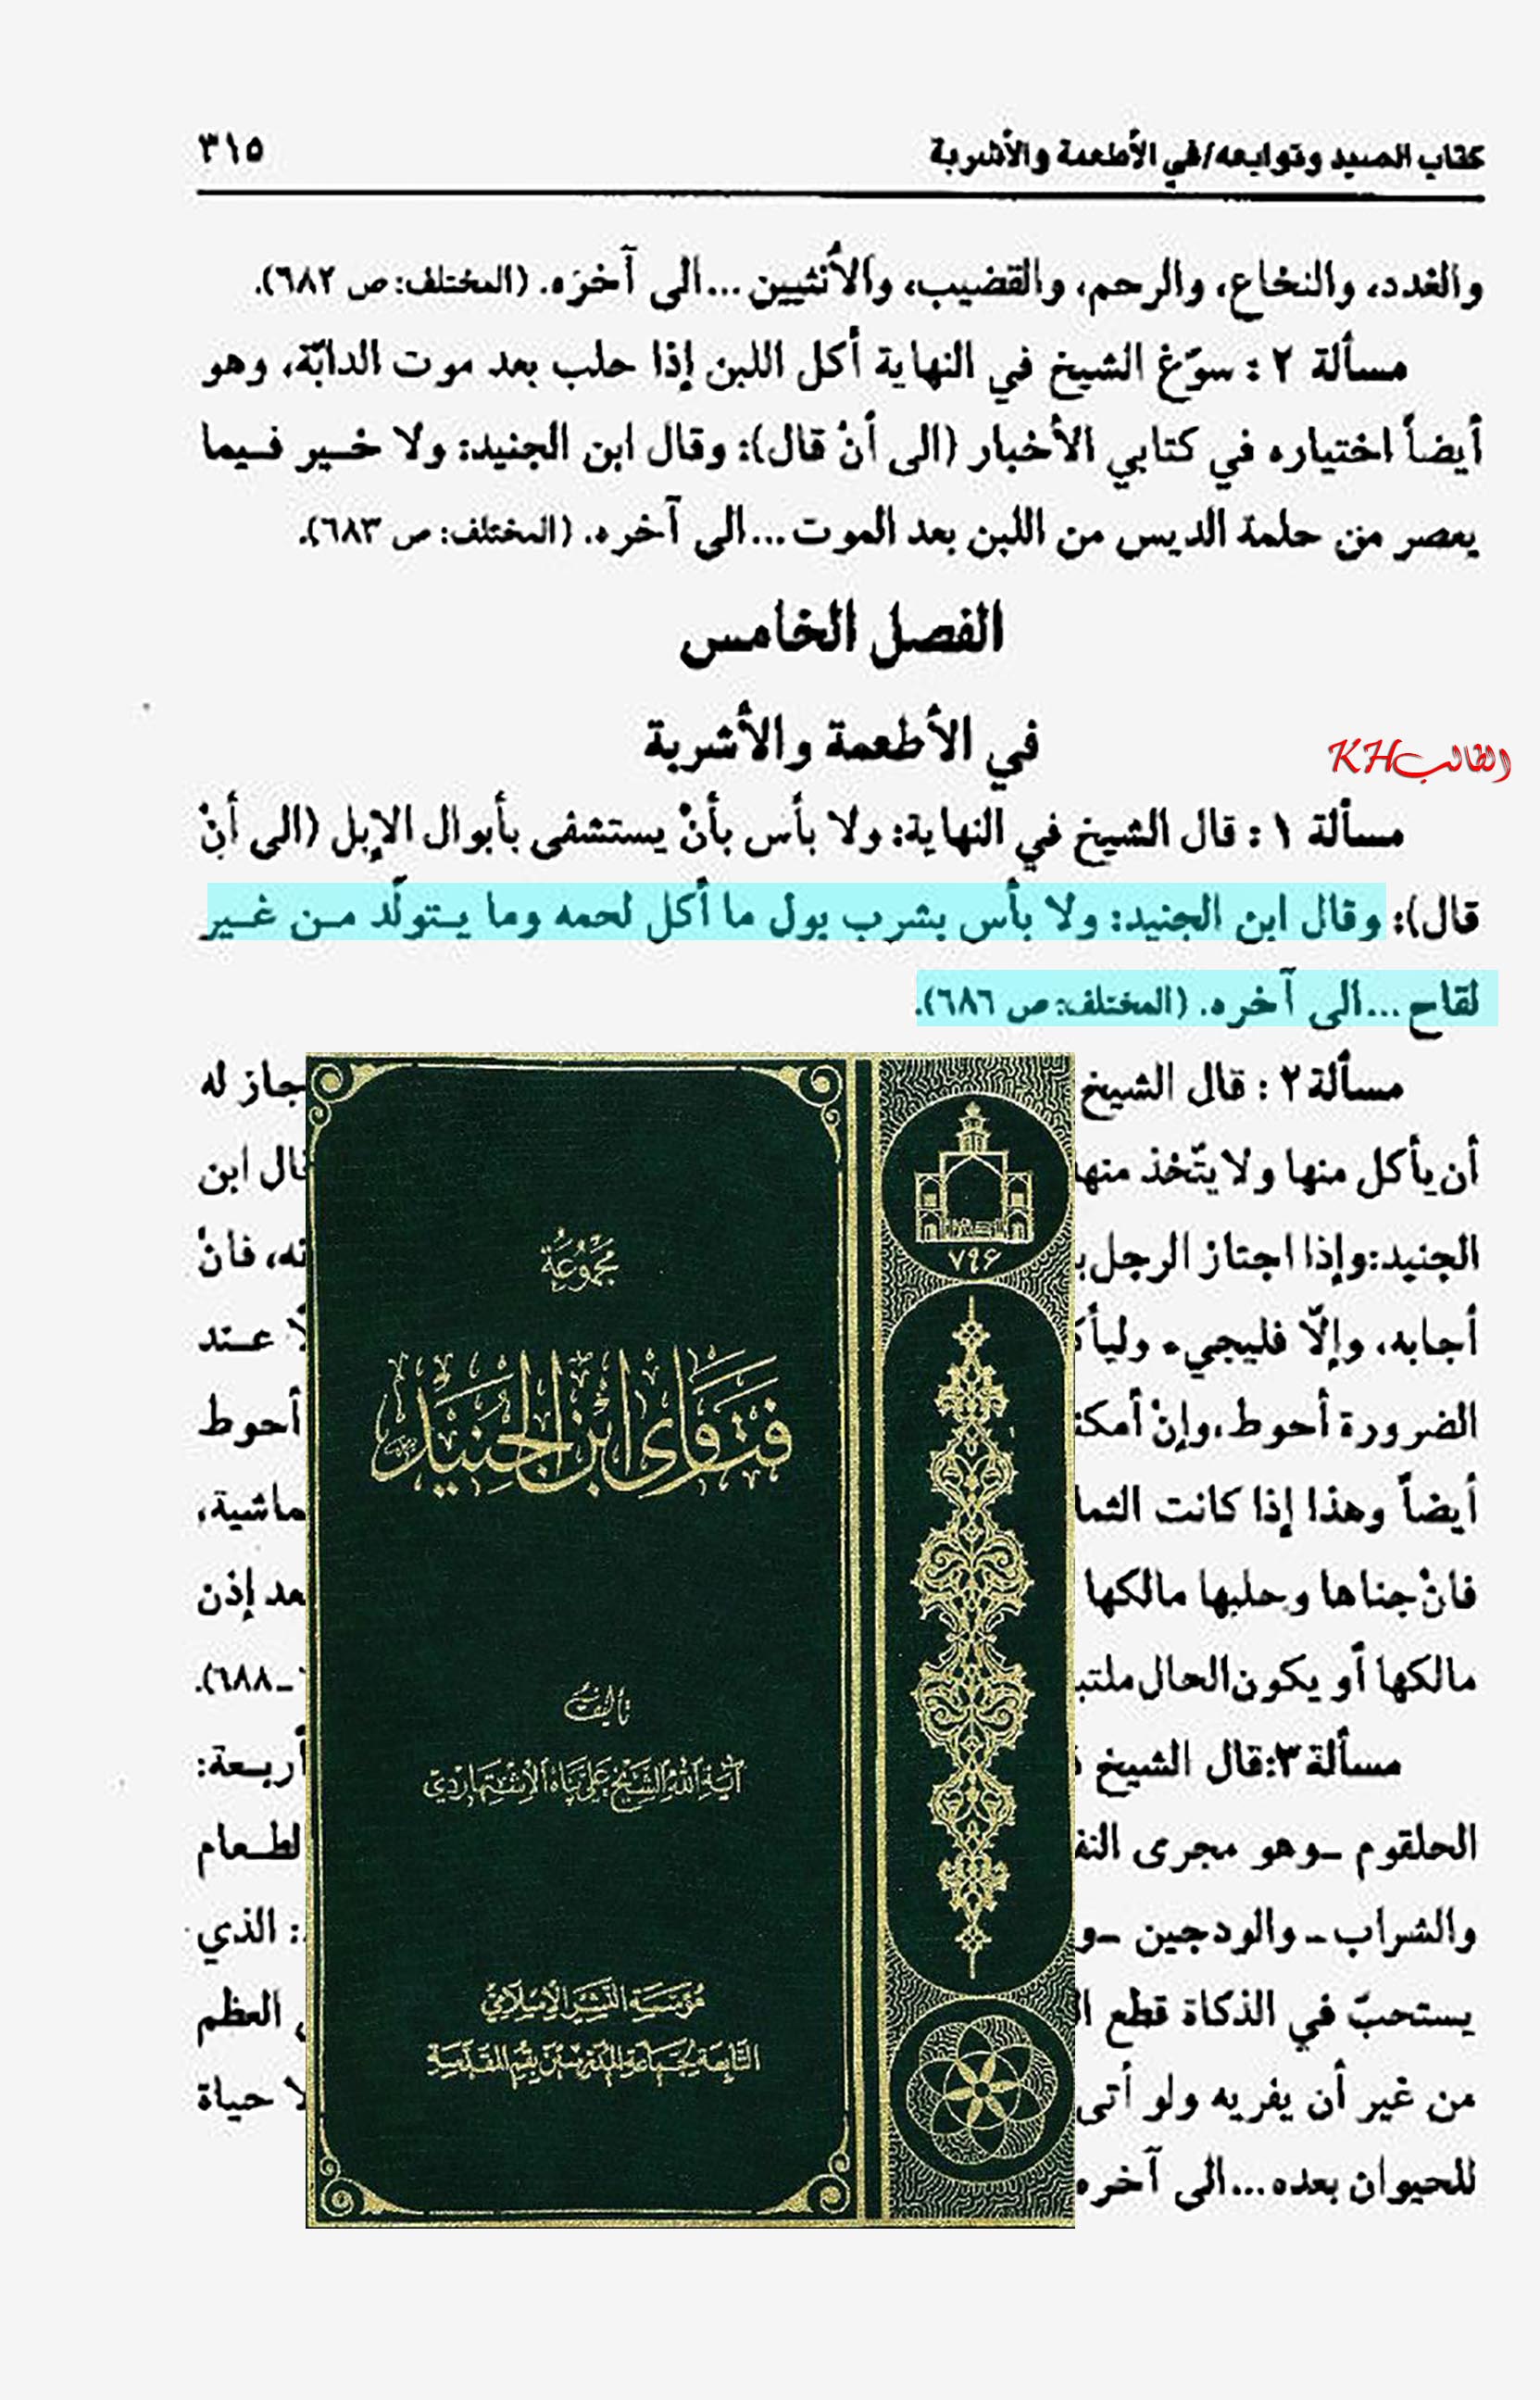 كتاب الصيد وتوابعه/في الأطعمة والأشربة ٣١٥
والغدد، والنخاع، والرحم، والقضيب، والأنثيين...الى آخره. (المختلف: ص ٦٨٢).
مسألة ٢ : سوّغ الشيخ في النهاية أكل اللبن إذا حلب بعد موت الدابّة، وهو
أيضاً اختياره في كتابي الأخبار (الى أنْ قال): وقال ابن الجنيد: ولا خير فيما
يعصر من حلمة الديس من اللبن بعد الموت...الى آخره. (المختلف: ص ٦٨٣).
الفصل الخامس
في الأطعمة والأشربة
الطالب KH
مسألة ١ : قال الشيخ في النهاية: ولا بأس بأنْ يستشفى بأبوال الإبل (الى أنْ
قال): وقال ابن الجنيد: ولا بأس بشرب بول ما أكل لحمه وما يتولّد من غير
لقاح...الى آخره. (المختلف: ص ٦٨٦).
مسألة ٢ : قال الشيخ جاز له
أن يأكل منها ولا يتّخذ منها قال ابن
الجنيد: وإذا اجتاز الرجل فانْ
أجابه، وإلّا فليجيء عند
الضرورة أحوط، وإنْ أحوط
أيضاً وهذا إذا كانت ماشية،
فانْ جناها وحلبها مالكها إذن
مالكها أو يكون الحال ـ٦٨٨).
مسألة ٣: قال الشيخ أربعة:
الحلقوم ـ وهو مجرى
والشراب ـ والودجين ـ الذي
يستحبّ في الذكاة قطع العظم
من غير أن يفريه ولو أتى حياة
للحيوان بعده...الى آخره
مجموعة
فتاوى ابن الجنيد
تأليف
آية الله الشيخ علي پناه الاشتهاردي
مؤسسة النشر الإسلامي
التابعة لجماعة المدرسين بقم المقدسة
٧٩۶